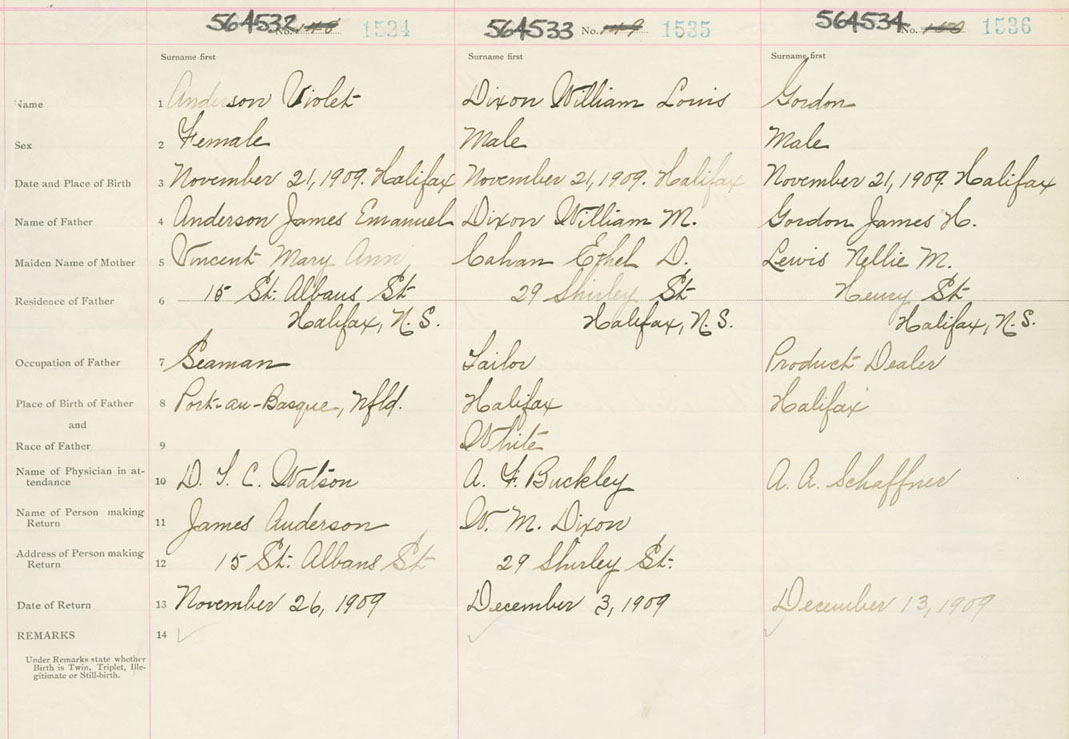 564532 No. 148 1534 564533 No. 149 1535 564534 No. 150 1536
Surname first Surname first Surname first
Name 1 Anderson Violet Dixon William Louis Gordon
Sex 2 Female Male Male
Date and Place of Birth 3 November 21, 1909. Halifax November 21, 1909. Halifax November 21, 1909. Halifax
Name of Father 4 Anderson James Emanuel Dixon William M. Gordon James H.
Maiden Name of Mother 5 Vincent Mary Ann Cahan Ethel D. Lewis Nellie M.
Residence of Father 6 15 St. Albans St 29 Shirley St Henry St
Halifax, N.S. Halifax, N.S. Halifax, N.S.
Occupation of Father 7 Seaman Tailor Product Dealer
Place of Birth of Father 8 Port-au-Basque, Nfld. Halifax Halifax
and
Race of Father 9 White
Name of Physician in at-
tendance 10 D. T. C. Watson A. F. Buckley A. A. Schaffner
Name of Person making
Return 11 James Anderson W. M. Dixon
Address of Person making
Return 12 15 St. Albans St 29 Shirley St.
Date of Return 13 November 26, 1909 December 3, 1909 December 13, 1909
REMARKS 14
Under Remarks state whether
Birth is Twin, Triplet, Ille-
gitimate or Still-birth.